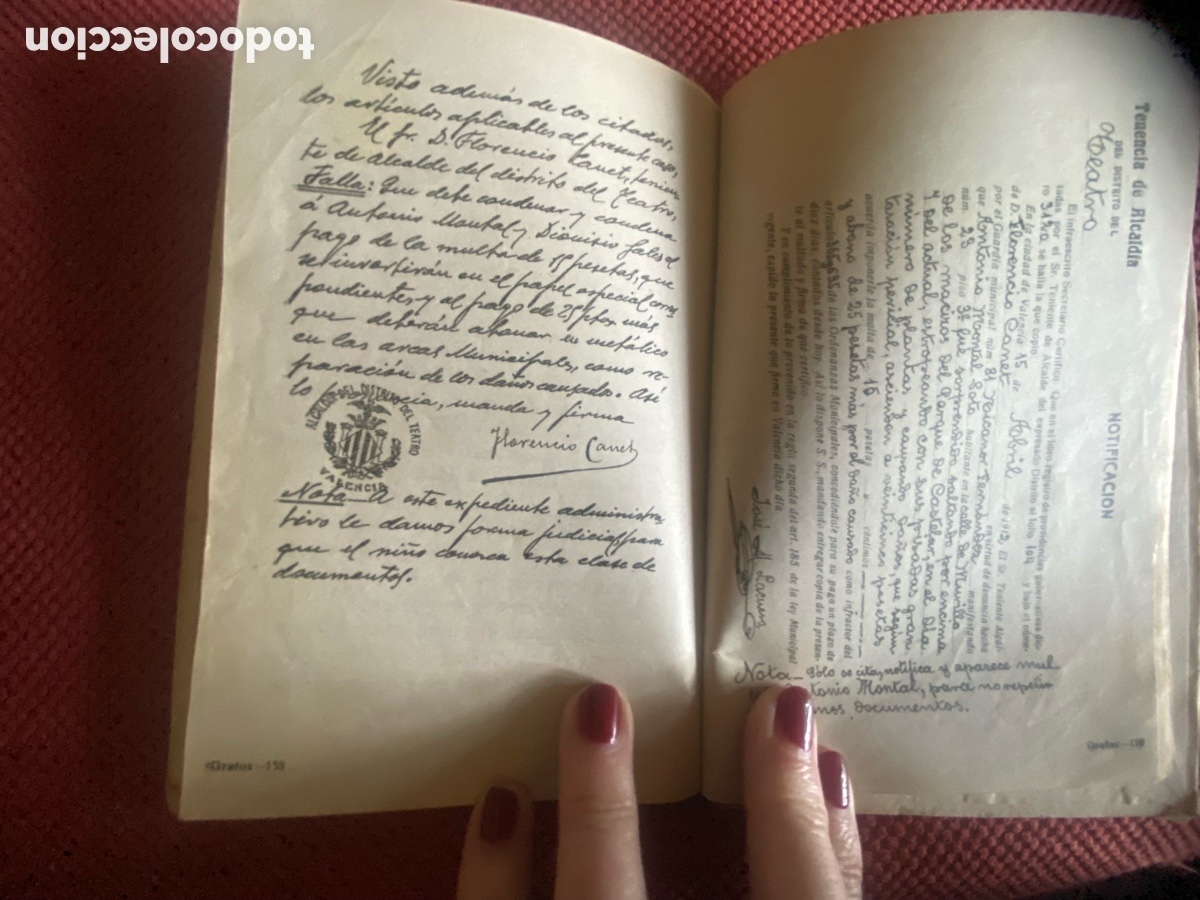 todocoleccion
Visto además de los citados,
los artículos aplicables al presente caso,
El Sr. D. Florencio Canet, tenien
te de alcalde del distrito del Teatro,
Falla: Que debe condenar y condena
á Antonio Montal y Dionisio Sales al
pago de la multa de 15 pesetas, que
se invertirán en el papel especial corres
pondiente, y al pago de 25 ptas más
que deberán abonar en metálico
en las arcas Municipales, como re-
paración de los daños causados. Así
lo manda y firma
Florencio Canet
ALCALDIA DEL DISTRITO DEL TEATRO
VALENCIA
Nota - A este expediente administra
tivo le damos forma judicial para
que el niño conozca esta clase de
documentos.
Gratos—158
Tenencia de Alcaldía
DEL DISTRITO DEL
Teatro
NOTIFICACION
El infrascrito Secretario Certifico: Que en el libro registro de providencias gubernativas dic-
tadas por el Sr. Teniente de Alcalde del expresado Distrito al folio 104 y bajo el núme-
ro se halla la que copio:
En la ciudad de Valencia 15 de Abril de 1912, El Sr. Teniente Alcal-
de D. Florencio Canet en virtud de denuncia hecha
por el Guardia municipal núm. 81 Nicanor Fernández manifestando
que Antonio Montal Soto habitante en la calle de Murillo
núm. 23 piso 3º fué sorprendido saltando por encima
de los macizos del Parque de Castelar, en el día
7 del actual, estropeando con sus pisadas gran
número de plantas y causando daños, que según
tasación pericial, ascienden a veinticinco pesetas
acuerda imponerle la multa de 15 pesetas céntimos
y abono de 25 pesetas mas por el daño causado como infractor del
artículo de las Ordenanzas Municipales, concediéndole para su pago un plazo de
diez días, contados desde hoy. Así lo dispone S. S., mandando entregar copia de la presen-
te al multado y firma de que certifico.
Y en cumplimiento de lo prevenido en la regla segunda del art. 185 de la ley Municipal
vigente, expido la presente que firmo en Valencia dicho día
José
Nota - Sólo se cita, notifica y aparece mul
tonio Montal, para no repetir
mos documentos.
Gratos—159